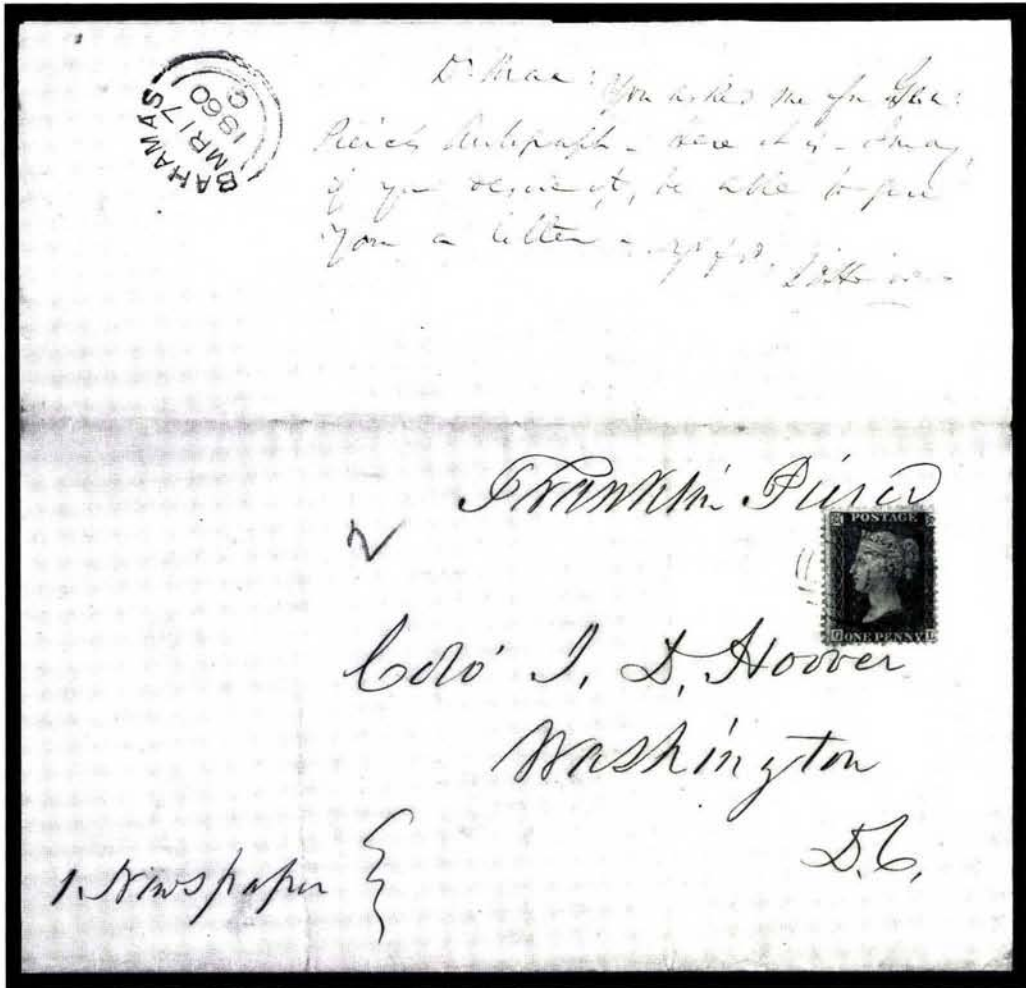 BAHAMAS
MR 17
1860
C
Dr Mac: You asked me for Gen:
Autograph - Here it is - I may,
if you desire it, be able to give
you a letter -
Franklin Pierce
2
POSTAGE
ONE PENNY
Colo' J. D. Hoover
Washington
D.C.
1. Newspaper